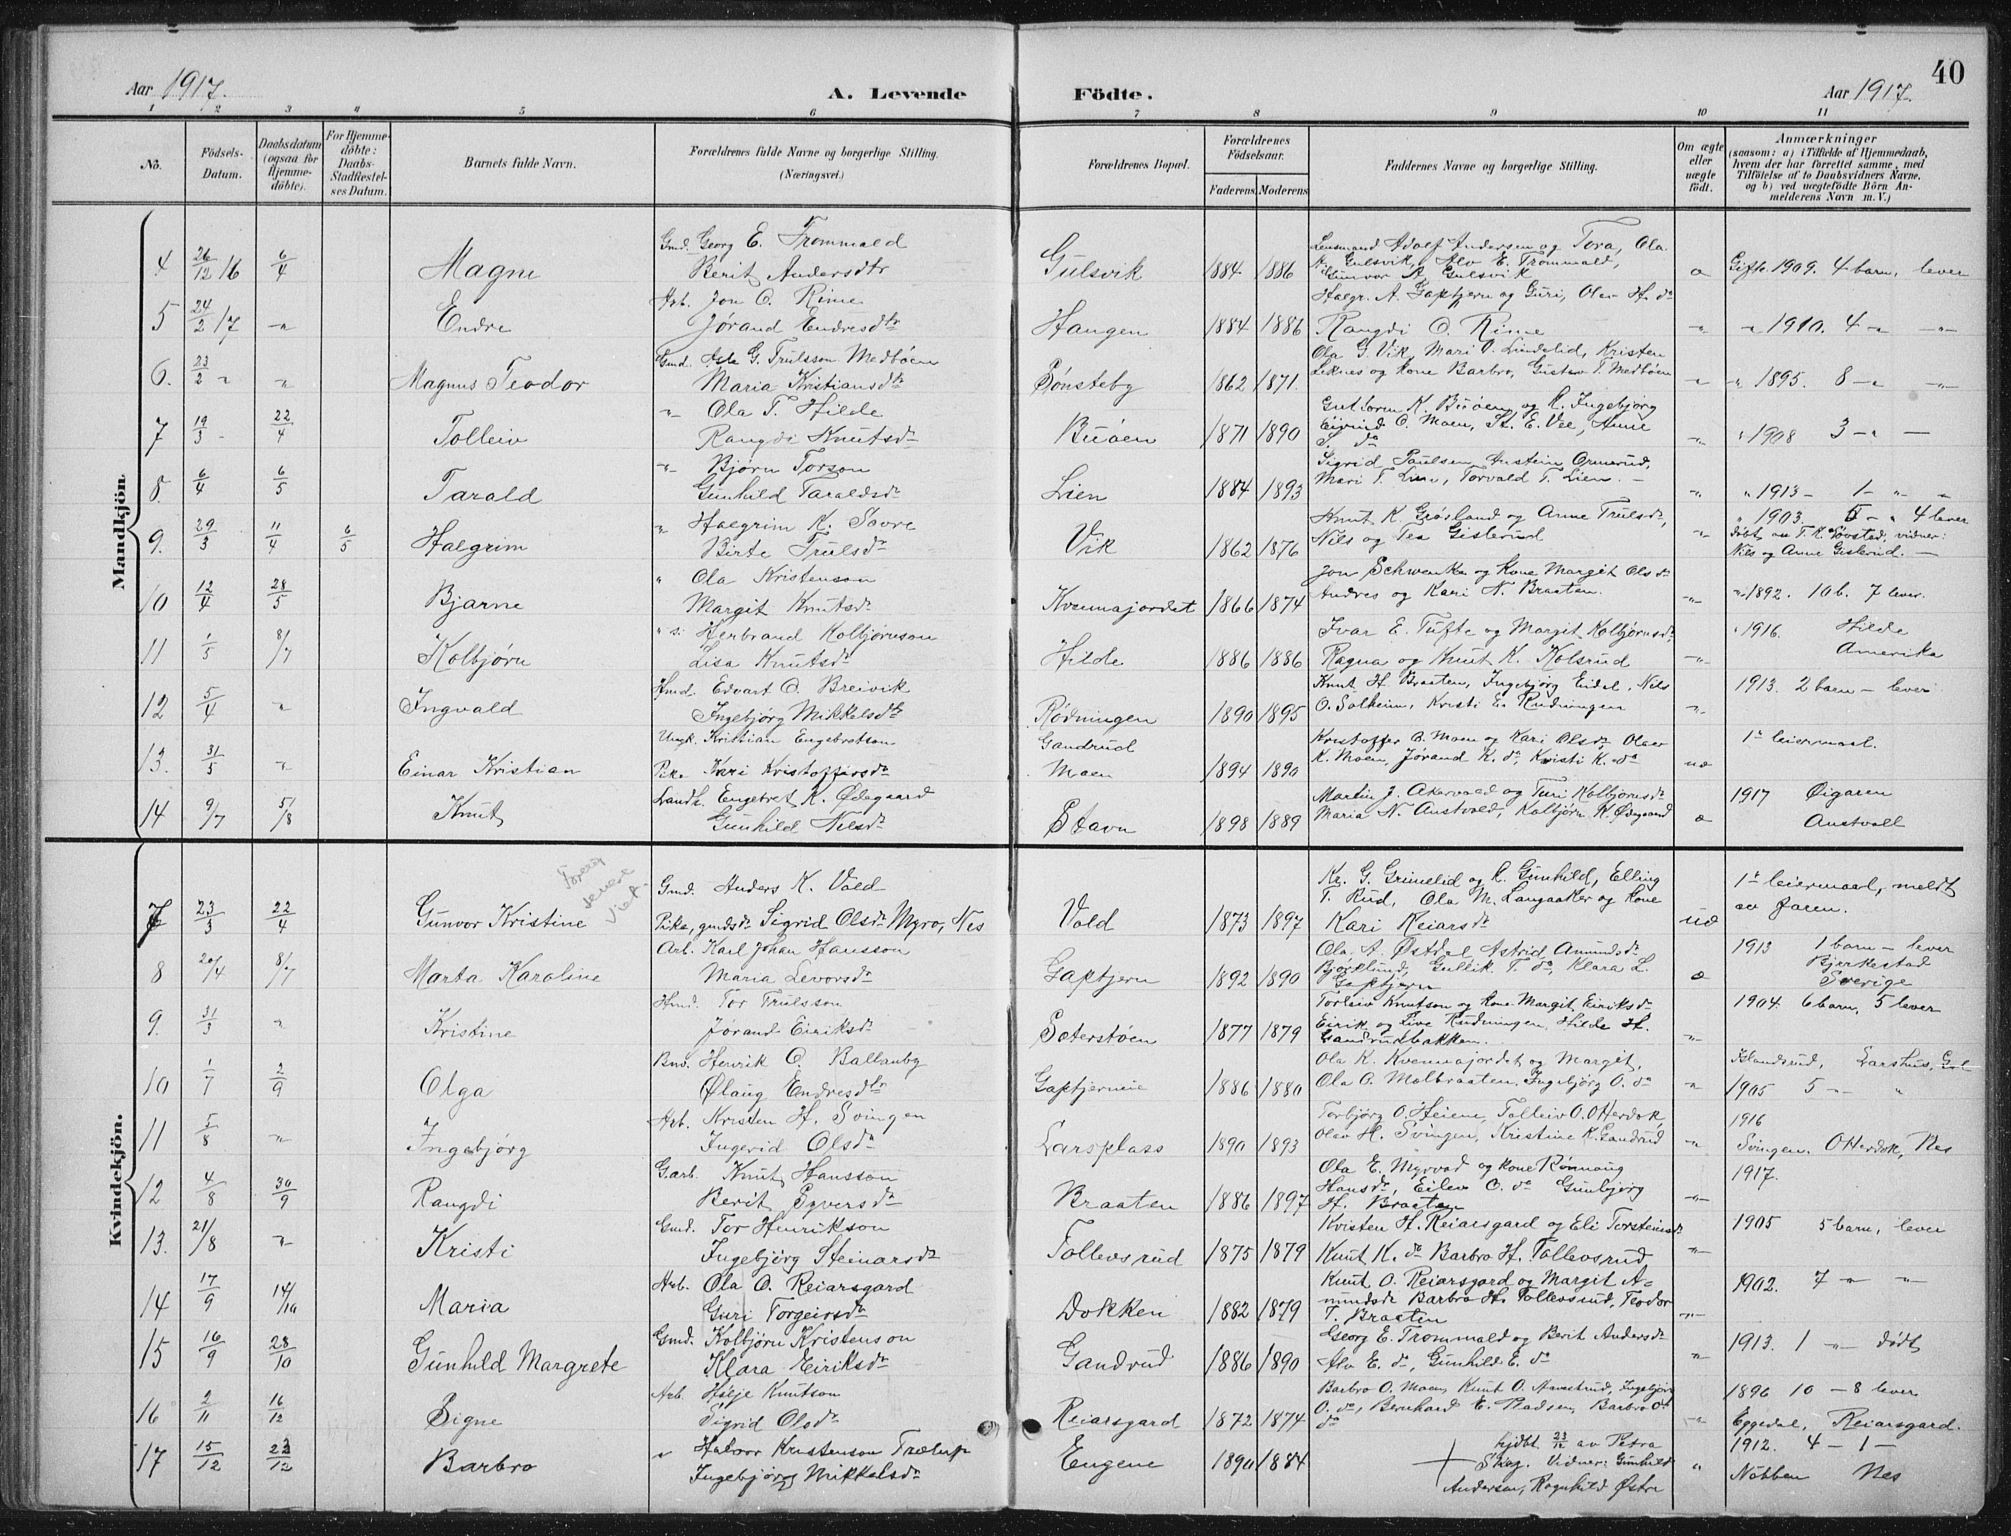 40
Aar 1917.
A. Levende Födte.
Aar 1917.
1 2 3 4 5 6 7 8 9 10 11
No.
Födsels-Datum.
Daabsdatum (ogsaa for Hjemmedöbte).
For Hjemmedöbte: Daabs-Stadfæstelses Datum.
Barnets fulde Navn.
Forældrenes fulde Navne og borgerlige Stilling.
(Næringsvei.)
Forældrenes Bopæl.
Forældrenes Födselsaar.
Faderens. Moderens
Faddernes Navne og borgerlige Stilling.
Om ægte eller uægte födt.
Anmærkninger
(saasom: a) i Tilfælde af Hjemmedaab, hvem der har forrettet samme, med Tilföielse af to Daabsvidners Navne, og b) ved uægtefödte Börn Anmelderens Navn m. V.)
Mandkjön.
4 26/12 16 6/4 Magne
Gmd. Georg E. Trommald
Berit Andersdtr
Gulsvik 1884 1886
Lensmand Adolf Andersen og Tora, Ola
Gulsvik, Alv E. Trommald,
Gunvor A. Gulsvik
Gift 1909. 4 barn, lever
5 24/2 17 -"- Endre
Arb. Jon O. Rime
Jørand Endresdtr
Haugen 1884 1886
Halgr. A. Gaptjern og Guri, Olav H. do
Rangdi O. Rime
" 1910. 4 -"- -"-
6. 23/2 " " Magnus Teodor
Gmd. Asle G. Trulsson Medbøen
Maria Kristiansdtr
Sønsteby 1862 1871.
Ola G. Vik, Mari O. Lindelid, Kristen
Leknes og kone Barbro, Gustav T. Medbøen
" 1895. 8 -"- -"-
7 19/3 - 22/4 Tolleiv
-"- Ola T. Hilde
Rangdi Knutsdr
Buøen 1871 1890
Guttorm K. Buøen og K. Ingebjørg
Eivind O. Moen, K. E. Vee, Anne
S. do
" 1908 3 -"- -
8. 6/4 6/5 Tarald
-"- Bjørn Torson
Gunhild Taraldsdr
Lien 1884 1893
Sigrid Paulsen, Anstein Ormerud,
Mari T. Lien, Torvald T. Lien. -
" 1913 - 1 - " "
9. 29/3 11/4 6/5 Halgrim
" Halgrim K. Sovre
Birte Trulsdr
Vik 1862 1876
Knut K. Grøsland og Anne Trulsdr,
Nils og Tea Gislerud
" 1903. 5 - " 4 lever
døbt av T. K. Søvstad, vidner:
Nils og Anne Gislerud. -
10 12/4 28/5 Bjarne
" Ola Kristenson
Margit Knutsdr
Kvennajordet 1866 1874
Jon Schwenke og kone Margit Olsdr
Andres og Kari N. Braaten.
" 1892. 10 b. 7 lever.
11 1/5 8/7 Kolbjørn
" s: Herbrand Kolbjørnson
Lisa Knutsdr
Hilde 1886 1886
Ivar E. Tufte og Margit Kolbjørnsdr,
Ragna og Knut K. Kolsrud
" 1916. Hilde
Amerika
12 5/4 " Ingvald
Hmd. Edvart O. Breivik
Ingebjørg Mikkelsdtr
Rødningen 1890 1895
Knut H. Braaten, Ingebjørg Eidal, Nils
O. Solheim, Kristi E. Rudningen
1913. 2 barn - lever
13. 31/5 " Einar Kristian
Ungk. Kristian Engebretson
Pike Kari Kristoffersdr
Gandrud
Moen 1894 1890
Kristoffer O. Moen og Kari Olsdr, Olav
K. Moen, Jørand K. do, Kristi K. do
uæ
1te leiermaal.
14 9/7 5/8 Knut
Landh. Engebret K. Ødegaard
Gunhild Nilsdr
Stavn 1898 1889
Martin J. Akervold og Turi Kolbjørnsdr
Maria N. Austvold, Kolbjørn K. Ødegaard
æ
1917 Øigaren
Austvoll
Kvindekjön.
7 23/3 22/4 Gunvor Kristine
Foreld senere viet
Gmd. Anders K. Vold
Pike, gmdsdr Sigrid Olsdr Myro, Nes
Vold 1873 1897
Kr. G. Grimelid og K. Gunhild, Elling
T. Rud, Ola M. Langaaker og kone
Kari Reiarsdr
uæ
1te leiermaal, meldt
av faren.
8 20/4 8/7 Marta Karoline
Arb. Karl Johan Hansson
Maria Levorsdr
Gaptjern 1892 1890
Ola A. Østdal, Astrid Amundsdr
Bjørklund, Gullik T. do, Klara L.
Gaptjern
æ
1913 1 barn - lever
Bjerkestad
Sverige
9. 31/3 " Kristine
Hmd. Tor Trulsson
Jørand Eiriksdr
Seterstøen 1877 1879
Torleiv Knutson og kone Margit Eiriksdr
Eirik og Live Rudningen, Hilde H.
Gandrudbakken.
1904. 6 barn, 5 lever
10 1/7 2/9 Olga
Bnd. Henrik O. Ballanby
Ølaug Endresdtr
Gaptjerneie 1886 1880
Ola K. Kvennajordet og Margit,
Ola O. Molbraaten, Ingebjørg O. do
Islandsrud, Larshus, Gol
1905 5 -"- "
11 5/8 " Ingebjørg
Arb. Kristen H. Svingen
Ingerid Olsdr
Larsplass 1890 1893
Torbjørg O. Heiene, Tolleiv O. Otterdok,
Olav H. Svingen, Kristine K. Gandrud
1916
Svingen. Otterdok, Nes
12 4/8 30/9 Rangdi
Garb. Knut Hansson
Berit Syversdr
Braaten 1886 1897
Ola E. Myrvad og kone Rønnaug
Hansdr, Eilev O. do Gunbjørg
H. Braaten
1917.
13. 21/8 " Kristi
Gmd. Tor Henrikson
Ingebjørg Steinarsdr
Tollevsrud 1875 1879
Kristen H. Reiarsgard og Eli Torsteinsdr
Knut K. do Barbro H. Tollevsrud
1905 5 barn, lever
14 17/9 14/10 Maria
Arb. Ola O. Reiarsgard
Guri Torgeirsdr
Dokken 1882 1879
Knut O. Reiarsgard og Margit A-
mundsdr Barbro H. Tollevsrud, Teodor
T. Braaten
1902. 7 -"- -"-
15 16/9 28/10 Gunhild Margrete
Gmd. Kolbjørn Kristenson
Klara Eiriksdr
Gandrud 1886 1890
Georg E. Trommald og Berit Andersdr
Alv E. do, Gunhild E. do
1913. 1 -"- dødt
16 2/11 16/12 Signe
Arb. Helje Knutson
Sigrid Olsdr
Reiarsgard 1872 1874
Barbro O. Moen, Knut O. Navestrud, Ingebjørg
O. do, Bernhard E. Madsen, Barbro O.
do
1896 10 - 8 lever
Eggedal, Reiarsgard.
17 15/12 23/12 Barbro
" Halvor Kristenson Trælup
Ingebjørg Mikkelsdr
Engene 1890 1884
hjdbt. 23/12 av Petra
Skag. Vidner: Gunhild
Anderson, Ragnhild Østro
1912. 4 - 1 -
Nobben Nes